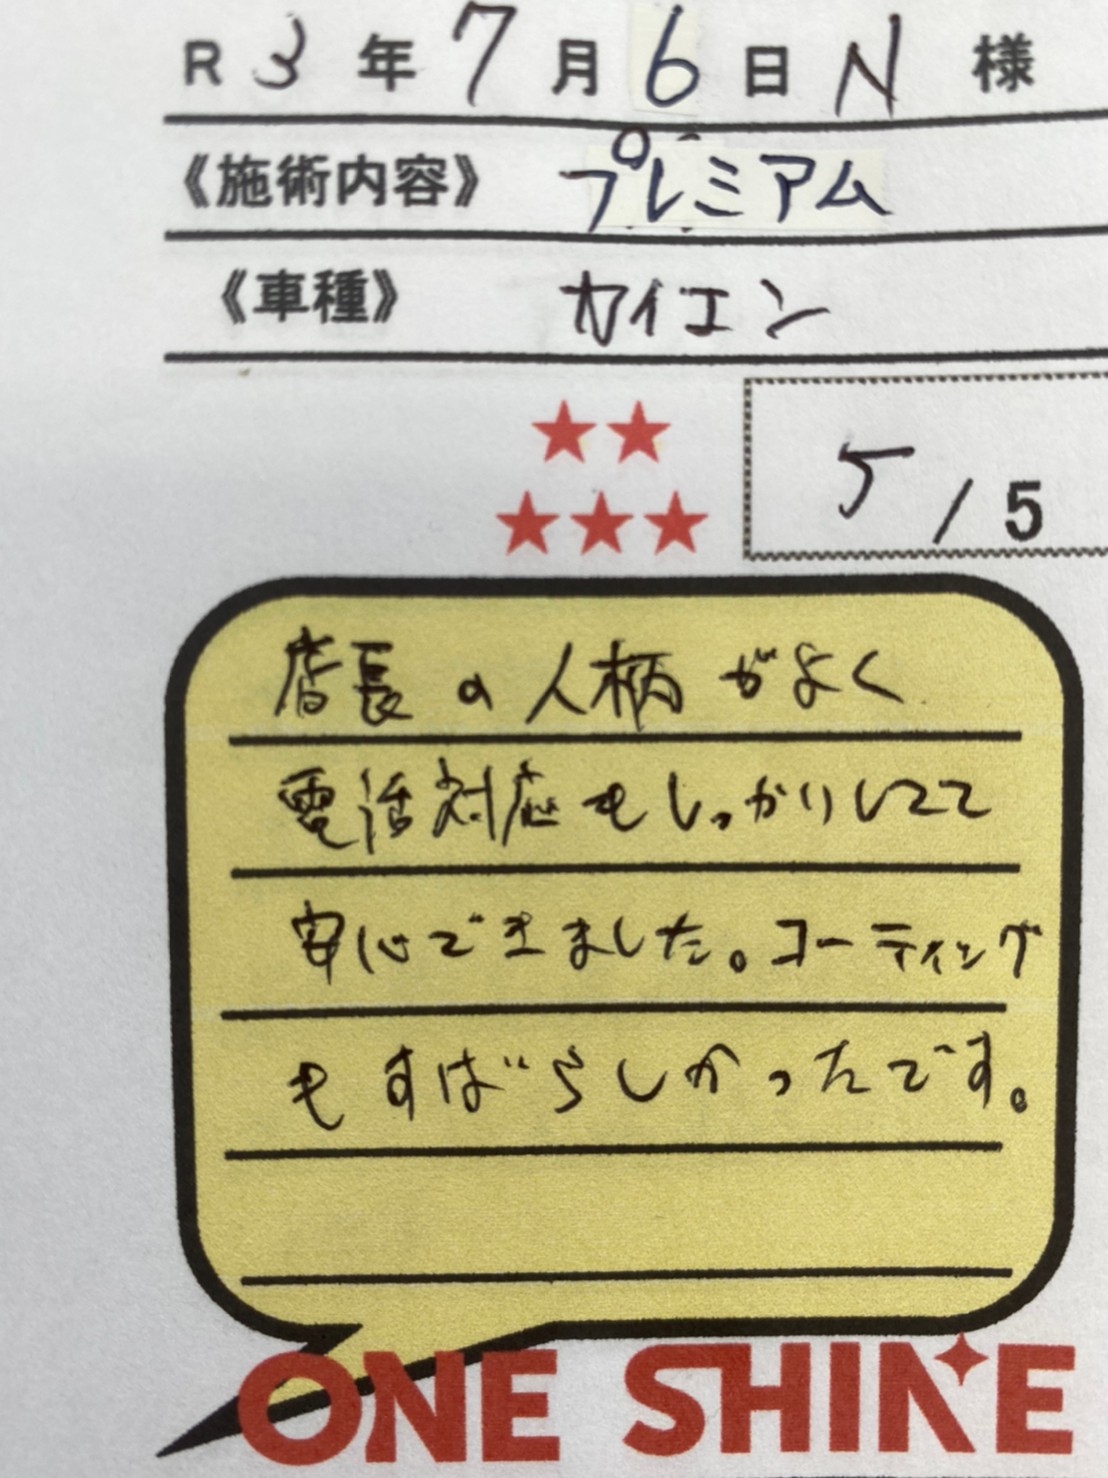 R 3 年 7 月 6 日 N 様
《施術内容》 プレミアム
《車種》 カイエン
5 / 5
店長の人柄がよく
電話対応もしっかりしてて
安心できました。コーティング
もすばらしかったです。
ONE SHINE